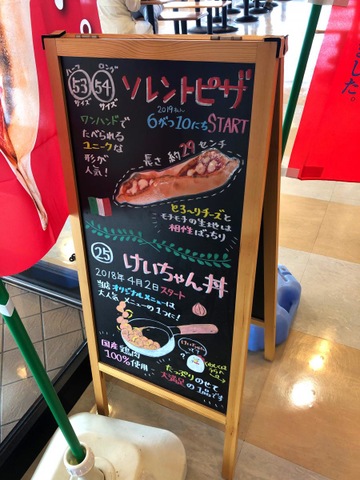 ハーフ
53
サイズ
ロング
54
サイズ
ソレントピザ
2019ねん
6がつ10にち START
ワンハンドで
たべられる
ユニークな
形が
人気!
長さ 約29センチ
とろ〜りチーズと
モチモチの生地は
相性ばっちり
25
けいちゃん丼
2018年4月2日スタート
当店オリジナルメニューは
大人気メニューの1つに!
国産鶏肉
100%使用
たっぷりのせて
大満足の1品です
した。